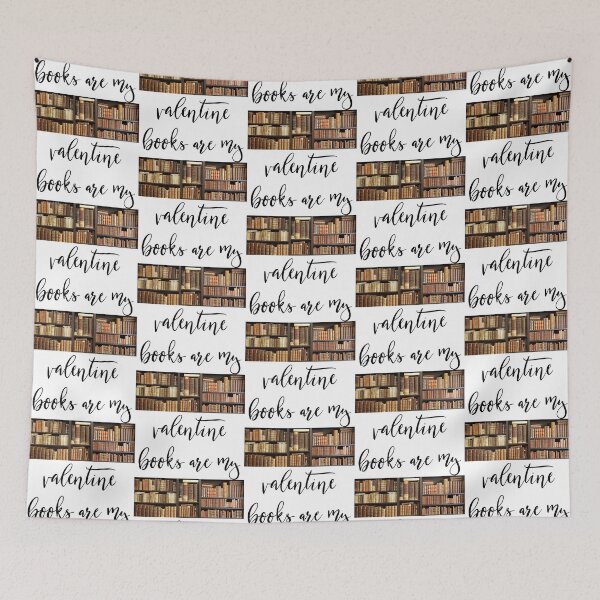 books are my
valentine
books are my
valentine
books are my
valentine
books are my
valentine
books are my
valentine
books are my
valentine
books are my
valentine
books are my
valentine
books are my
books are my
valentine
books are my
valentine
books are my
valentine
books are my
valentine
books are my
valentine
books are my
valentine
books are my
valentine
books are my
valentine
books are my
books are my
valentine
books are my
valentine
books are my
valentine
books are my
valentine
books are my